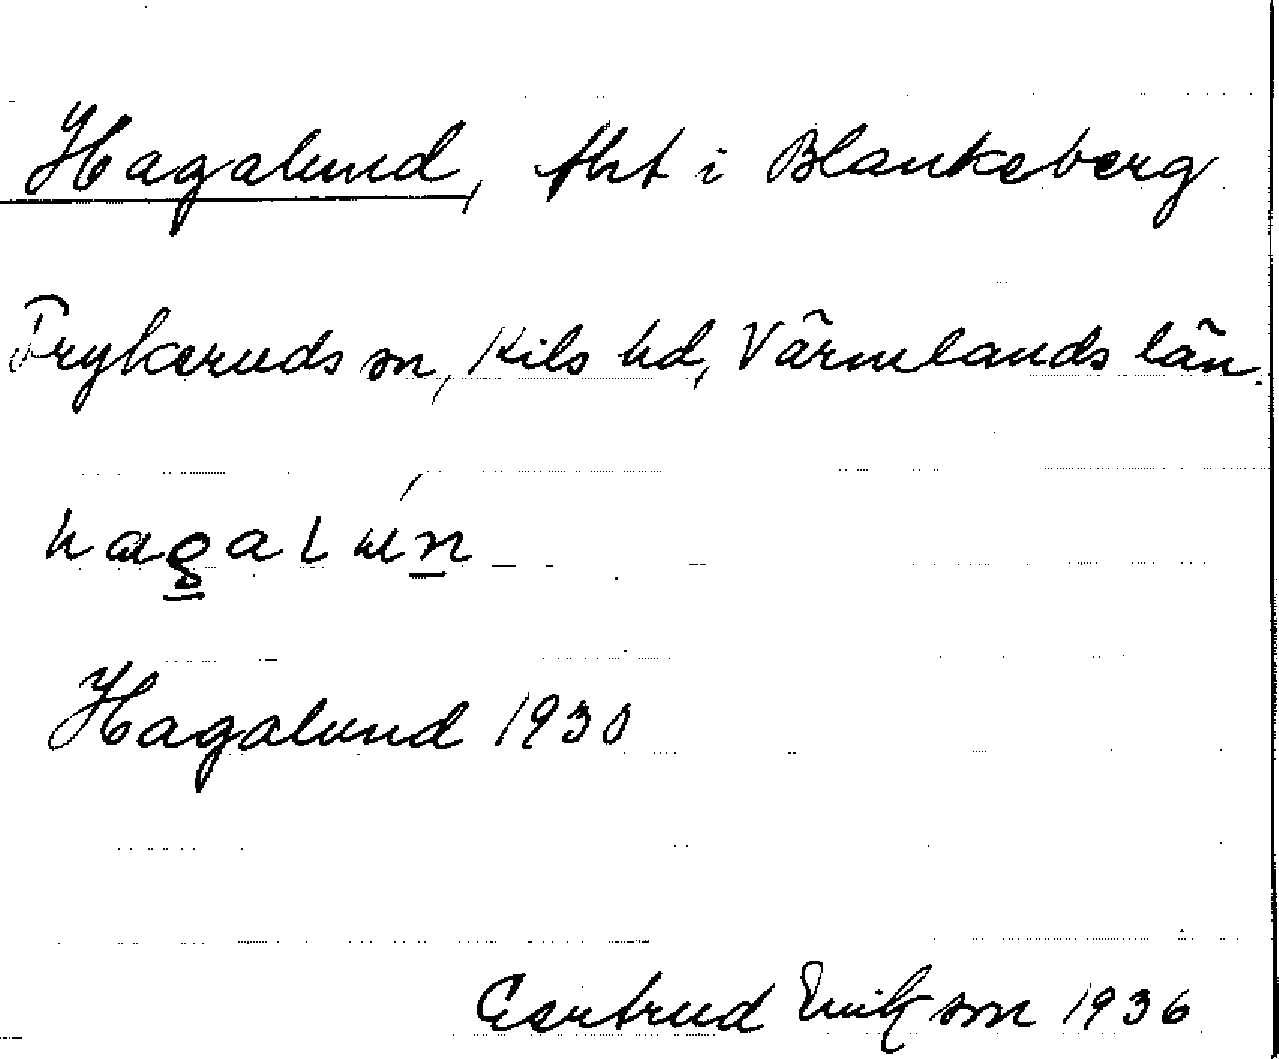 Hagalund, fht i Blankeberg
Frykeruds sn, Kils hd, Värmlands län.
Hagalund 1930
Gertrud Erikson 1936